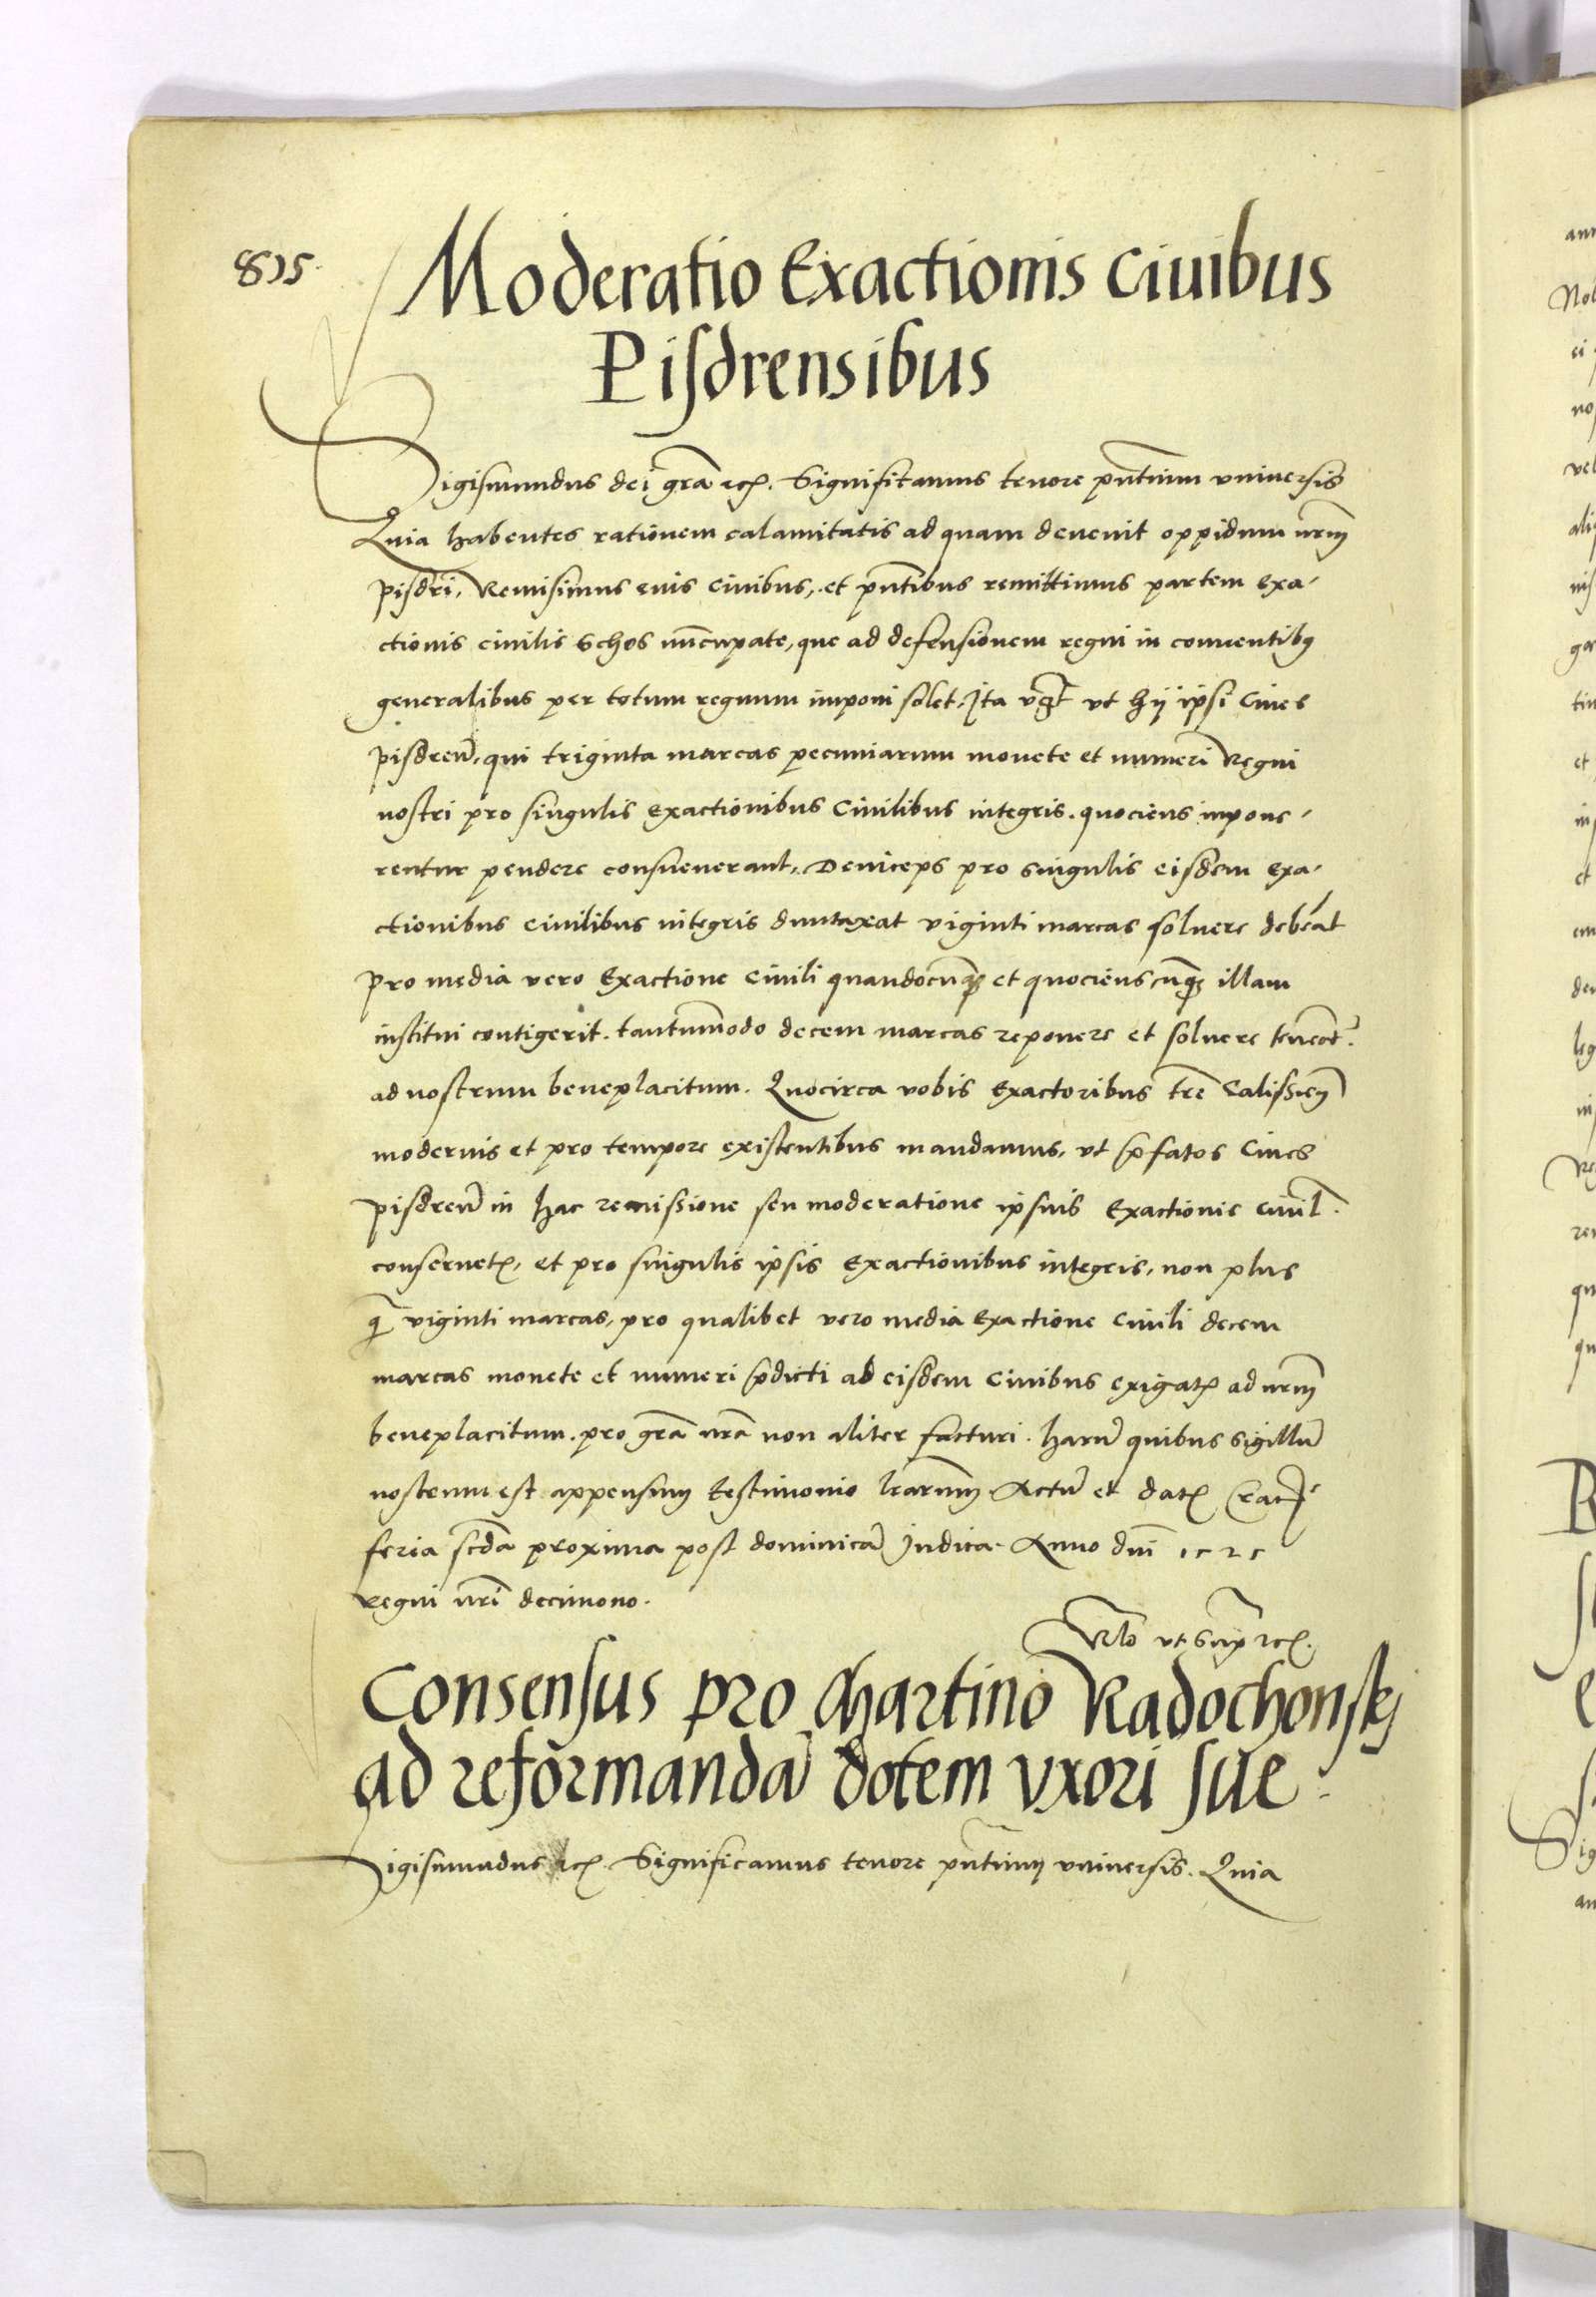 815.
Moderatio Exactionis Ciuibus
Pisdrensibus
Sigismundus dei gra etc. Significamus tenore pntium vniuersis
Quia habentes rationem calamitatis ad quam deuenit oppidum nrm
pisdri, Remisimus eius Ciuibus, et pntibus remittimus partem Exa-
ctionis ciuilis Schos nuncupate, que ad defensionem regni in conuentibus
generalibus per totum regnum imponi solet. Ita vt hij ipsi Ciues
pisdren, qui triginta marcas pecuniarum monete et numeri Regni
nostri pro singulis Exactionibus Ciuilibus integris. quociens impone-
rentur pendere consueuerant, Deinceps pro singulis eisdem Exa-
ctionibus Ciuilibus integris duntaxat viginti marcas soluere debeat
pro media vero Exactione Ciuili quandocunque et quocienscunque illam
institui contigerit. tantummodo decem marcas reponere et soluere teneant
ad nostrum beneplacitum. Quocirca vobis Exactoribus tre Calissien
modernis et pro tempore existentibus mandamus, vt prefatos Ciues
pisdren in hac remissione seu moderatione ipsius Exactionis Ciuil.
conseruetis, et pro singulis ipsis Exactionibus integris, non plus
q viginti marcas, pro qualibet vero media Exactione Ciuili decem
marcas monete et numeri predicti ab eisdem Ciuibus exigatis ad nrm
beneplacitum. pro gra nra non aliter facturi. harum quibus sigillum
nostrum est appensum testimonio lrarum. Actum et datum Crac
feria scda proxima post dominicam Judica. Anno dni 1525
Regni nri decimono.
Rlo vt supra etc.
Consensus pro Martino Radochonskj
ad reformandā dotem vxori sue.
Sigismundus etc. Significamus tenore pntium vniuersis. Quia